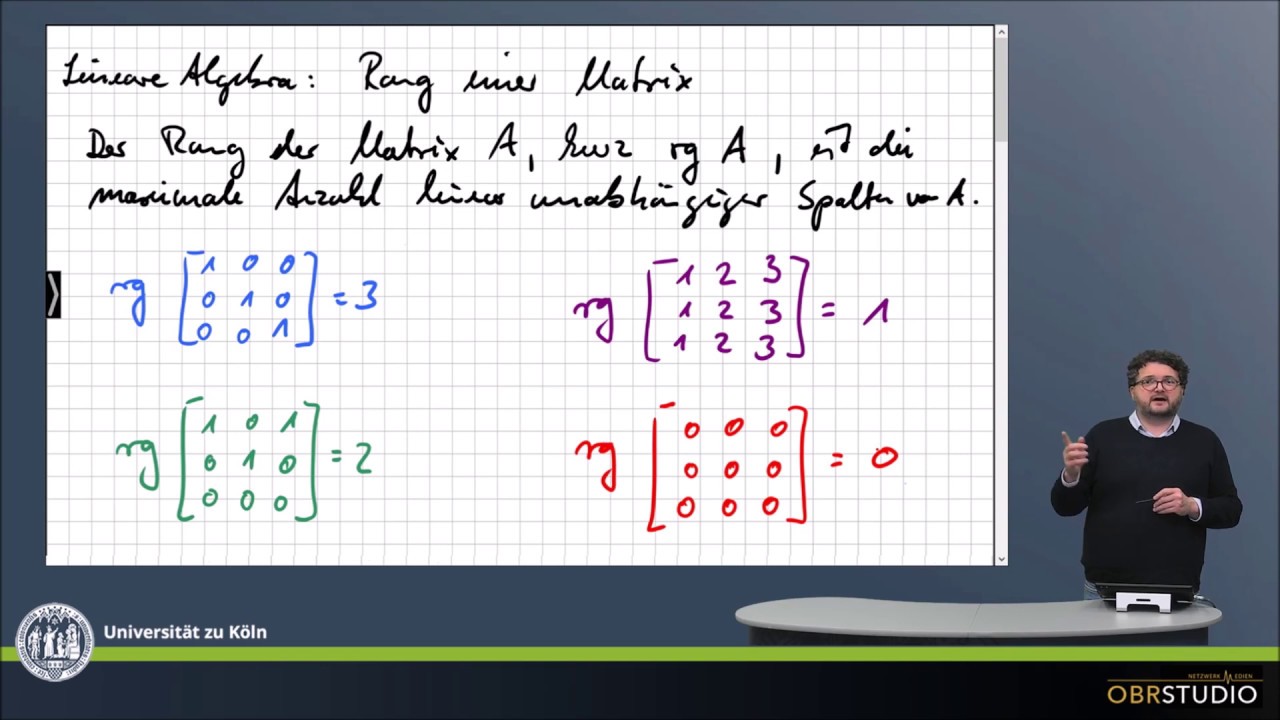 Lineare Algebra: Rang einer Matrix
Der Rang der Matrix A, kurz rg A, ist die
maximale Anzahl linear unabhängiger Spalten von A.
rg [1 0 0
0 1 0
0 0 1] = 3
rg [1 2 3
1 2 3
1 2 3] = 1
rg [1 0 1
0 1 0
0 0 0] = 2
rg [0 0 0
0 0 0
0 0 0] = 0
Universität zu Köln
NETZWERK MEDIEN
OBRSTUDIO